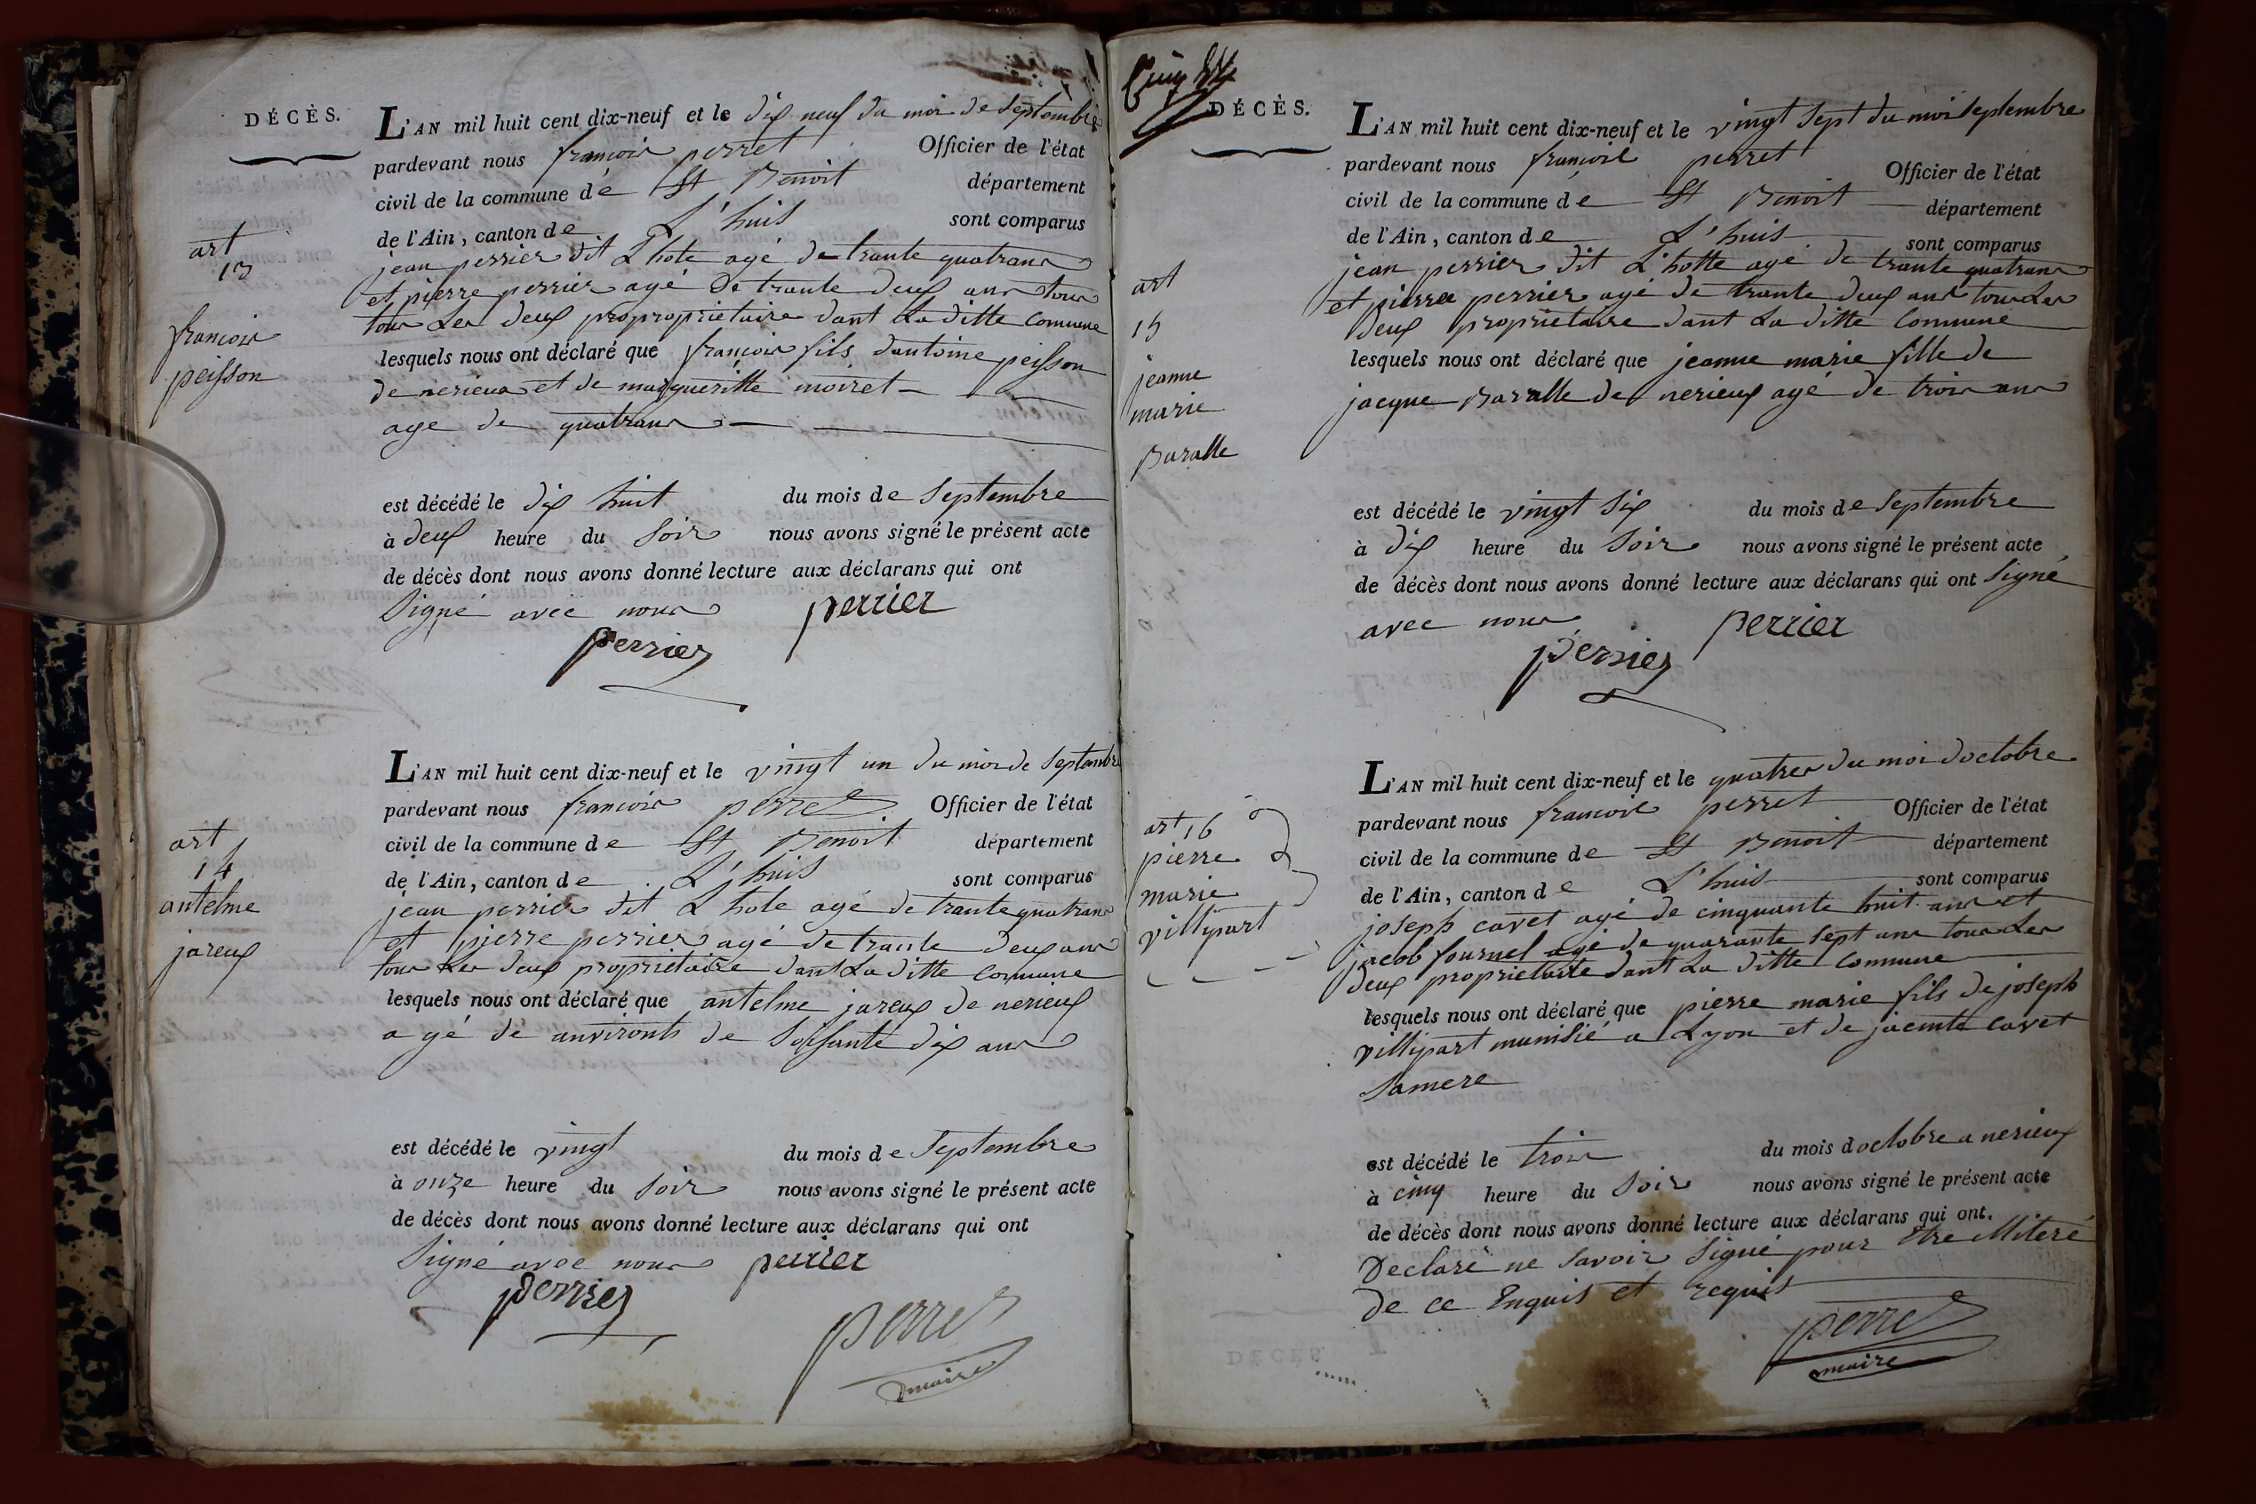 DÉCÈS.
L'AN mil huit cent dix-neuf et le dix neuf du moi de Septembre
pardevant nous françois perret Officier de l'état
civil de la commune dé St Benoit département
de l'Ain, canton de L'huis sont comparus
jean perrier dit L'hote agé de trante quatrans
et pierre perrier agé de trante deux ans tous
tous Les deux propropriétaire dant La ditte commune
lesquels nous ont déclaré que françois fils dantoine peisson
de nerieux et de marguéritte moiret
age de quatrans
est décédé le dix huit du mois de Septembre
à deux heure du Soir nous avons signé le présent acte
de décès dont nous avons donné lecture aux déclarans qui ont
Signé avec nous perrier
perrier
art
13
françois
peisson
L'AN mil huit cent dix-neuf et le vingt un du moi de Septembre
pardevant nous françois perret Officier de l'état
civil de la commune de St Benoit département
de l'Ain, canton de L'huis sont comparus
jean perrier dit L'hote agé de trante quatrans
et pierre perrier agé de trante deux ans
tous Les deux propriétaire dant La ditte commune
lesquels nous ont déclaré que antelme jareux de nerieux
agé de anvironts de Soissante dix ans
est décédé le vingt du mois de Septembre
à onze heure du Soir nous avons signé le présent acte
de décès dont nous avons donné lecture aux déclarans qui ont
Signé avec nous perrier
perrier
perret
maire
art
14
antelme
jareux
DÉCÈS.
L'AN mil huit cent dix-neuf et le vingt Sept du moi Septembre
pardevant nous françois perret Officier de l'état
civil de la commune dé St Benoit département
de l'Ain, canton de L'huis sont comparus
jean perrier dit L'hotte agé de trante quatrans
et pierre perrier agé de trante deux ans tous Les
deux propriétaire dant La ditte Commune
lesquels nous ont déclaré que jeanne marie fille de
jacque Baralle de nerieux agé de trois ans
est décédé le vingt Six du mois de Septembre
à dix heure du Soir nous avons signé le présent acte
de décès dont nous avons donné lecture aux déclarans qui ont Signé
avec nous perrier
perrier
art
15
jeanne
marie
Baralle
L'AN mil huit cent dix-neuf et le quatres du moi doctobre
pardevant nous françois perret Officier de l'état
civil de la commune de St Benoit département
de l'Ain, canton de L'huis sont comparus
joseph cavet agé de cinquante huit ans et
jacob fournel agé de quarante Sept ans tous Les
deux propriétaire dant La ditte Commune
lesquels nous ont déclaré que pierre marie fils de joseph
villypart a Lyon et de jacinte cavet
Samere
est décédé le trois du mois doctobre a nerieux
à cinq heure du Soir nous avons signé le présent acte
de décès dont nous avons donné lecture aux déclarans qui ont.
Declaré ne Savoir Signé pour Etre illiteré
de ce Enquis et requis
perret
maire
art 16
pierre
marie
villypart